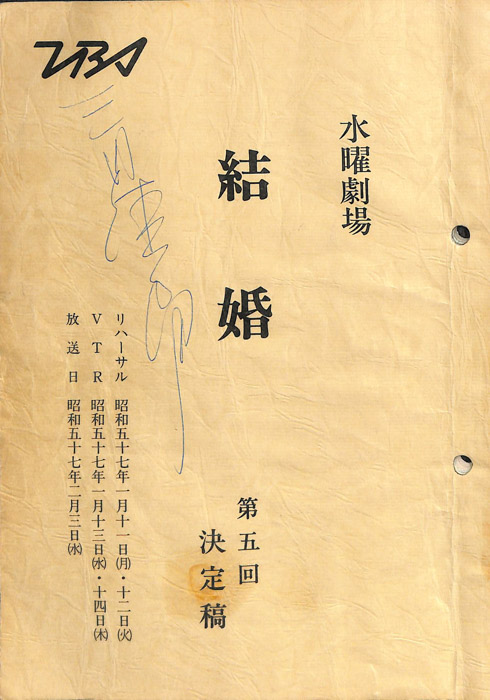 TBS
水曜劇場
結婚
第五回
決定稿
リハーサル 昭和五十七年一月十一日㈪・十二日㈫
VTR 昭和五十七年一月十三日㈬・十四日㈭
放送日 昭和五十七年二月三日㈬